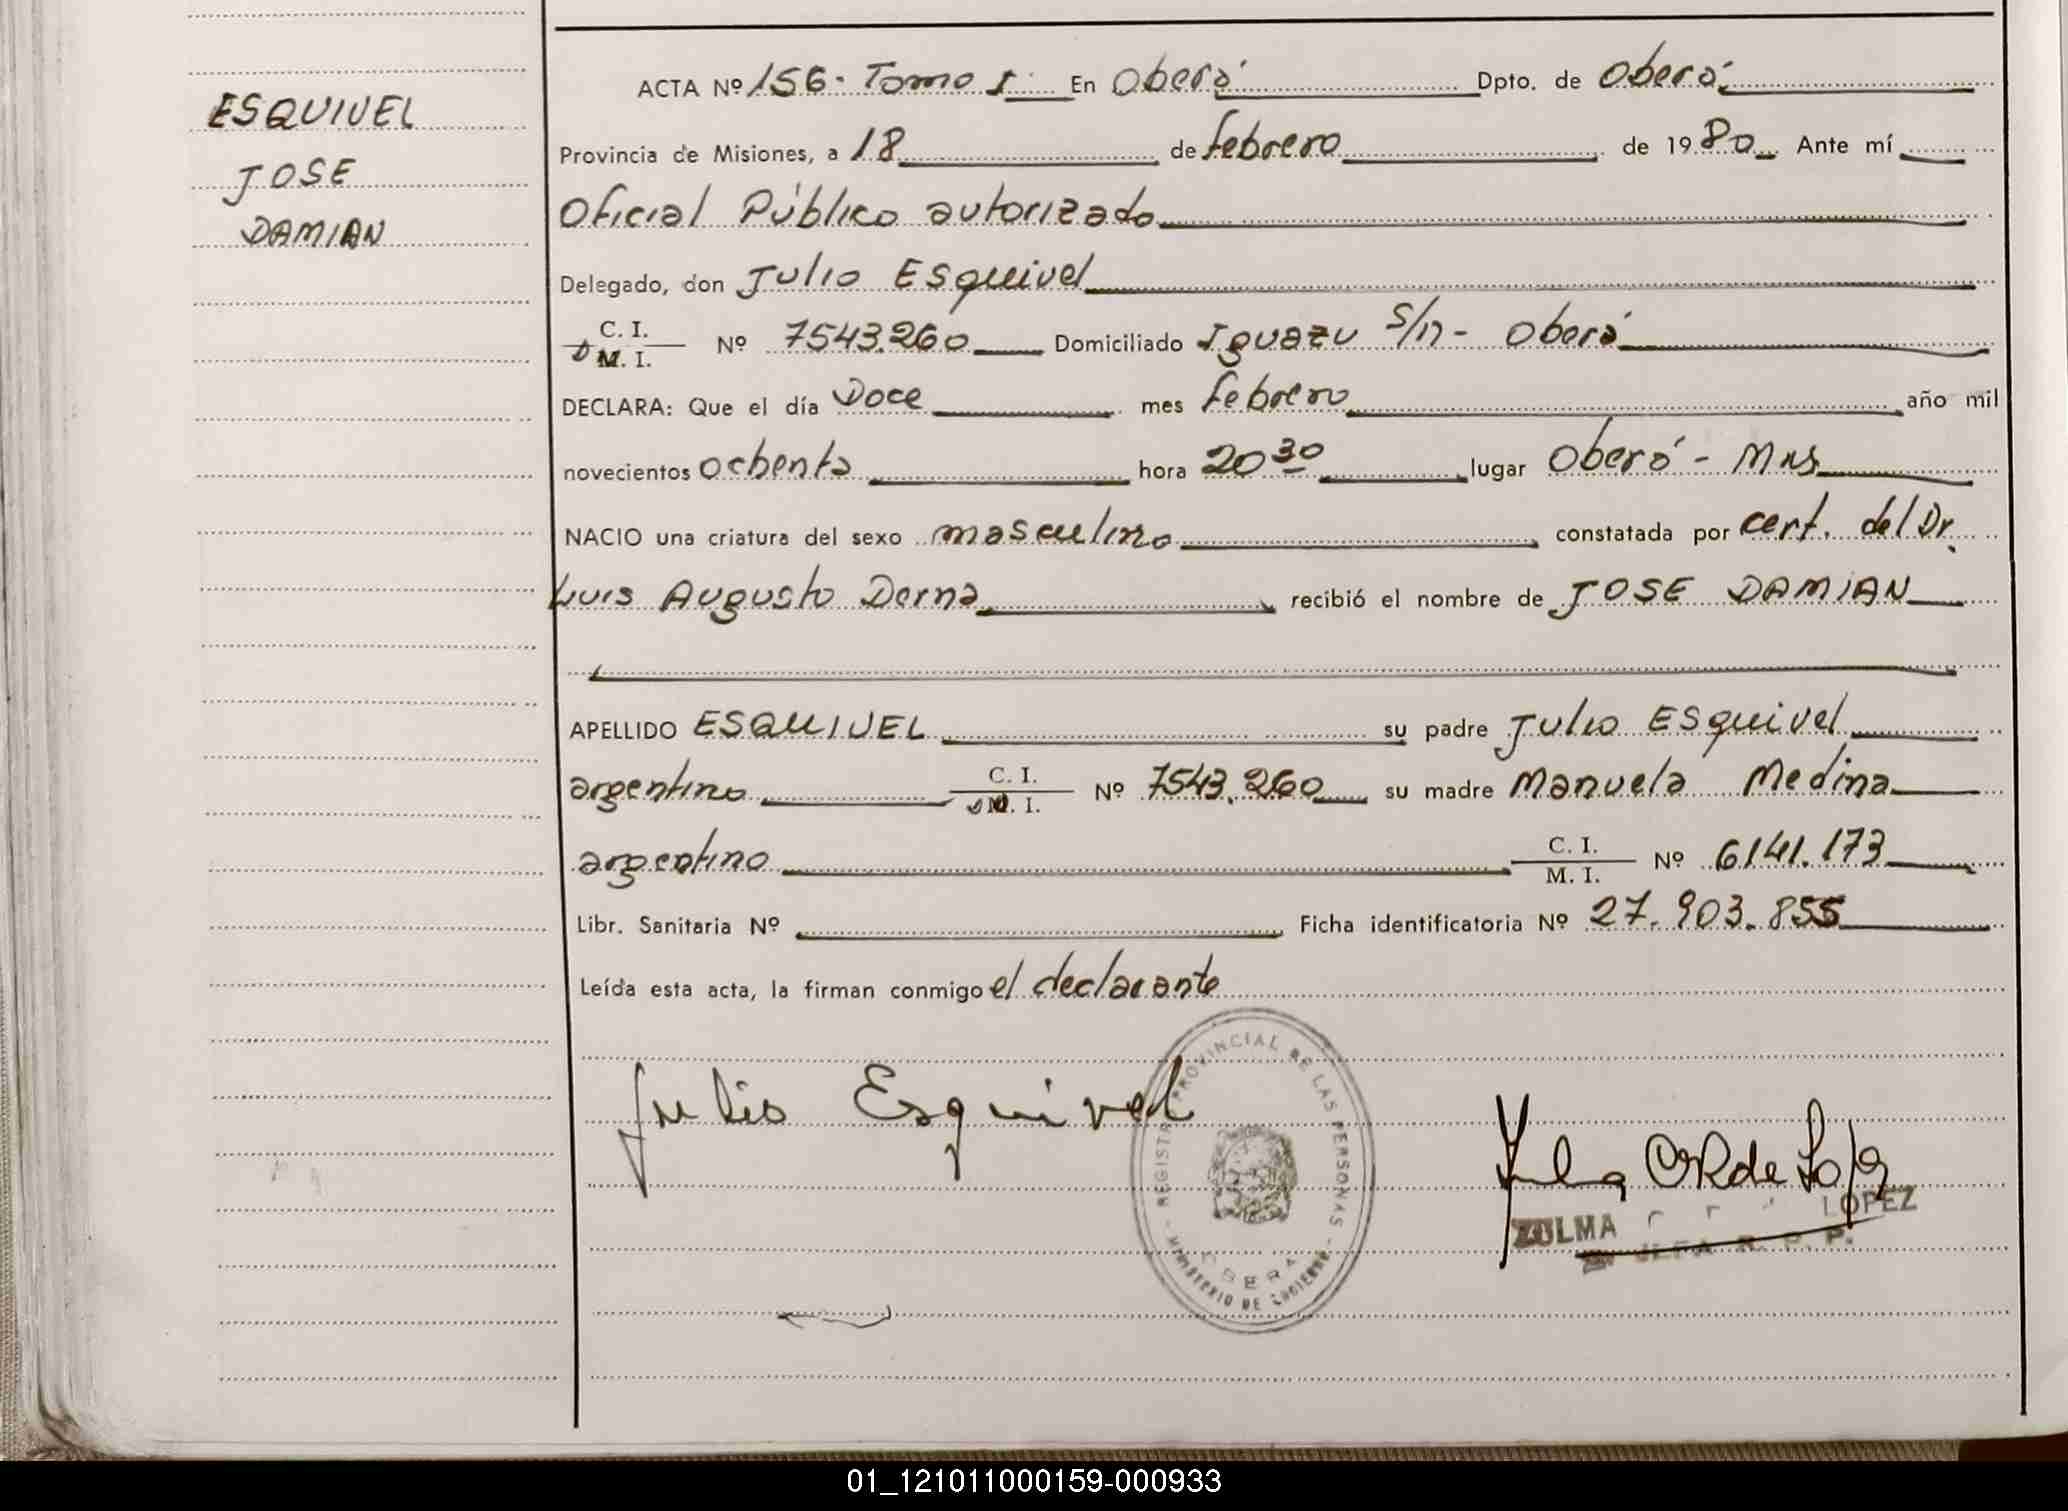 ESQUIVEL
JOSE
DAMIAN
ACTA Nº 156- Tomo I En Oberá Dpto. de Oberá
Provincia de Misiones, a 18 de febrero de 1980 Ante mí
Oficial Público autorizado
Delegado, don Julio Esquivel
C. I.
D M. I. Nº 7543.260 Domiciliado Iguazu s/n - Oberá
DECLARA: Que el día Doce mes febrero año mil
novecientos ochenta hora 20 30 lugar Oberá - Mns
NACIO una criatura del sexo masculino constatada por cert. del Dr.
Luis Augusto Derna recibió el nombre de JOSE DAMIAN
APELLIDO ESQUIVEL su padre Julio Esquivel
argentino C. I. D M. I. Nº 7543.260 su madre Manuela Medina
argentino C. I. M. I. Nº 6141.173
Libr. Sanitaria Nº Ficha identificatoria Nº 27.903.855
Leída esta acta, la firman conmigo el declarante
Julio Esquivel
REGISTRO PROVINCIAL DE LAS PERSONAS
OBERA
MINISTERIO DE GOBIERNO
ZULMA LOPEZ
JEFA R. P. P.
01_121011000159-000933